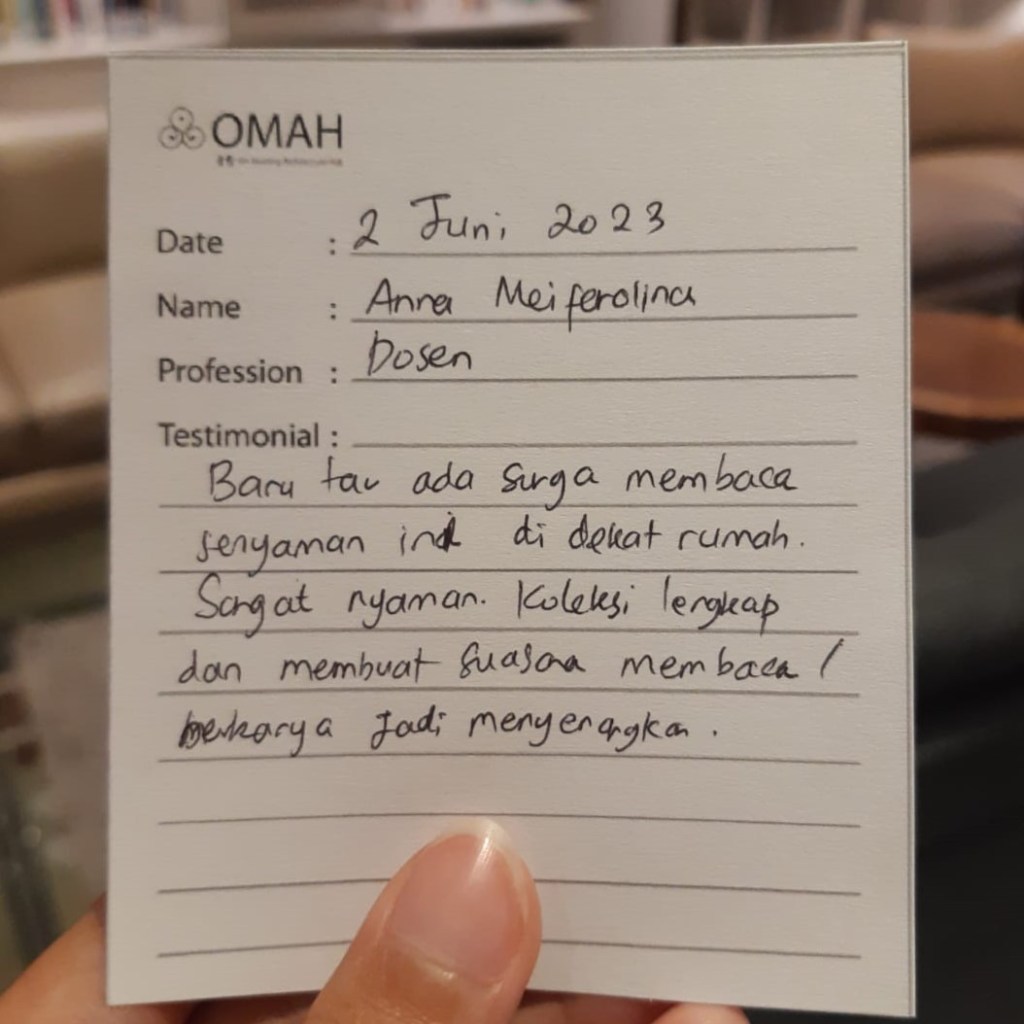 OMAH
Date : 2 Juni 2023
Name : Anna Meiferolina
Profession : Dosen
Testimonial :
Baru tau ada surga membaca
senyaman ini di dekat rumah.
Sangat nyaman. Koleksi lengkap
dan membuat suasana membaca /
berkarya jadi menyenangkan.